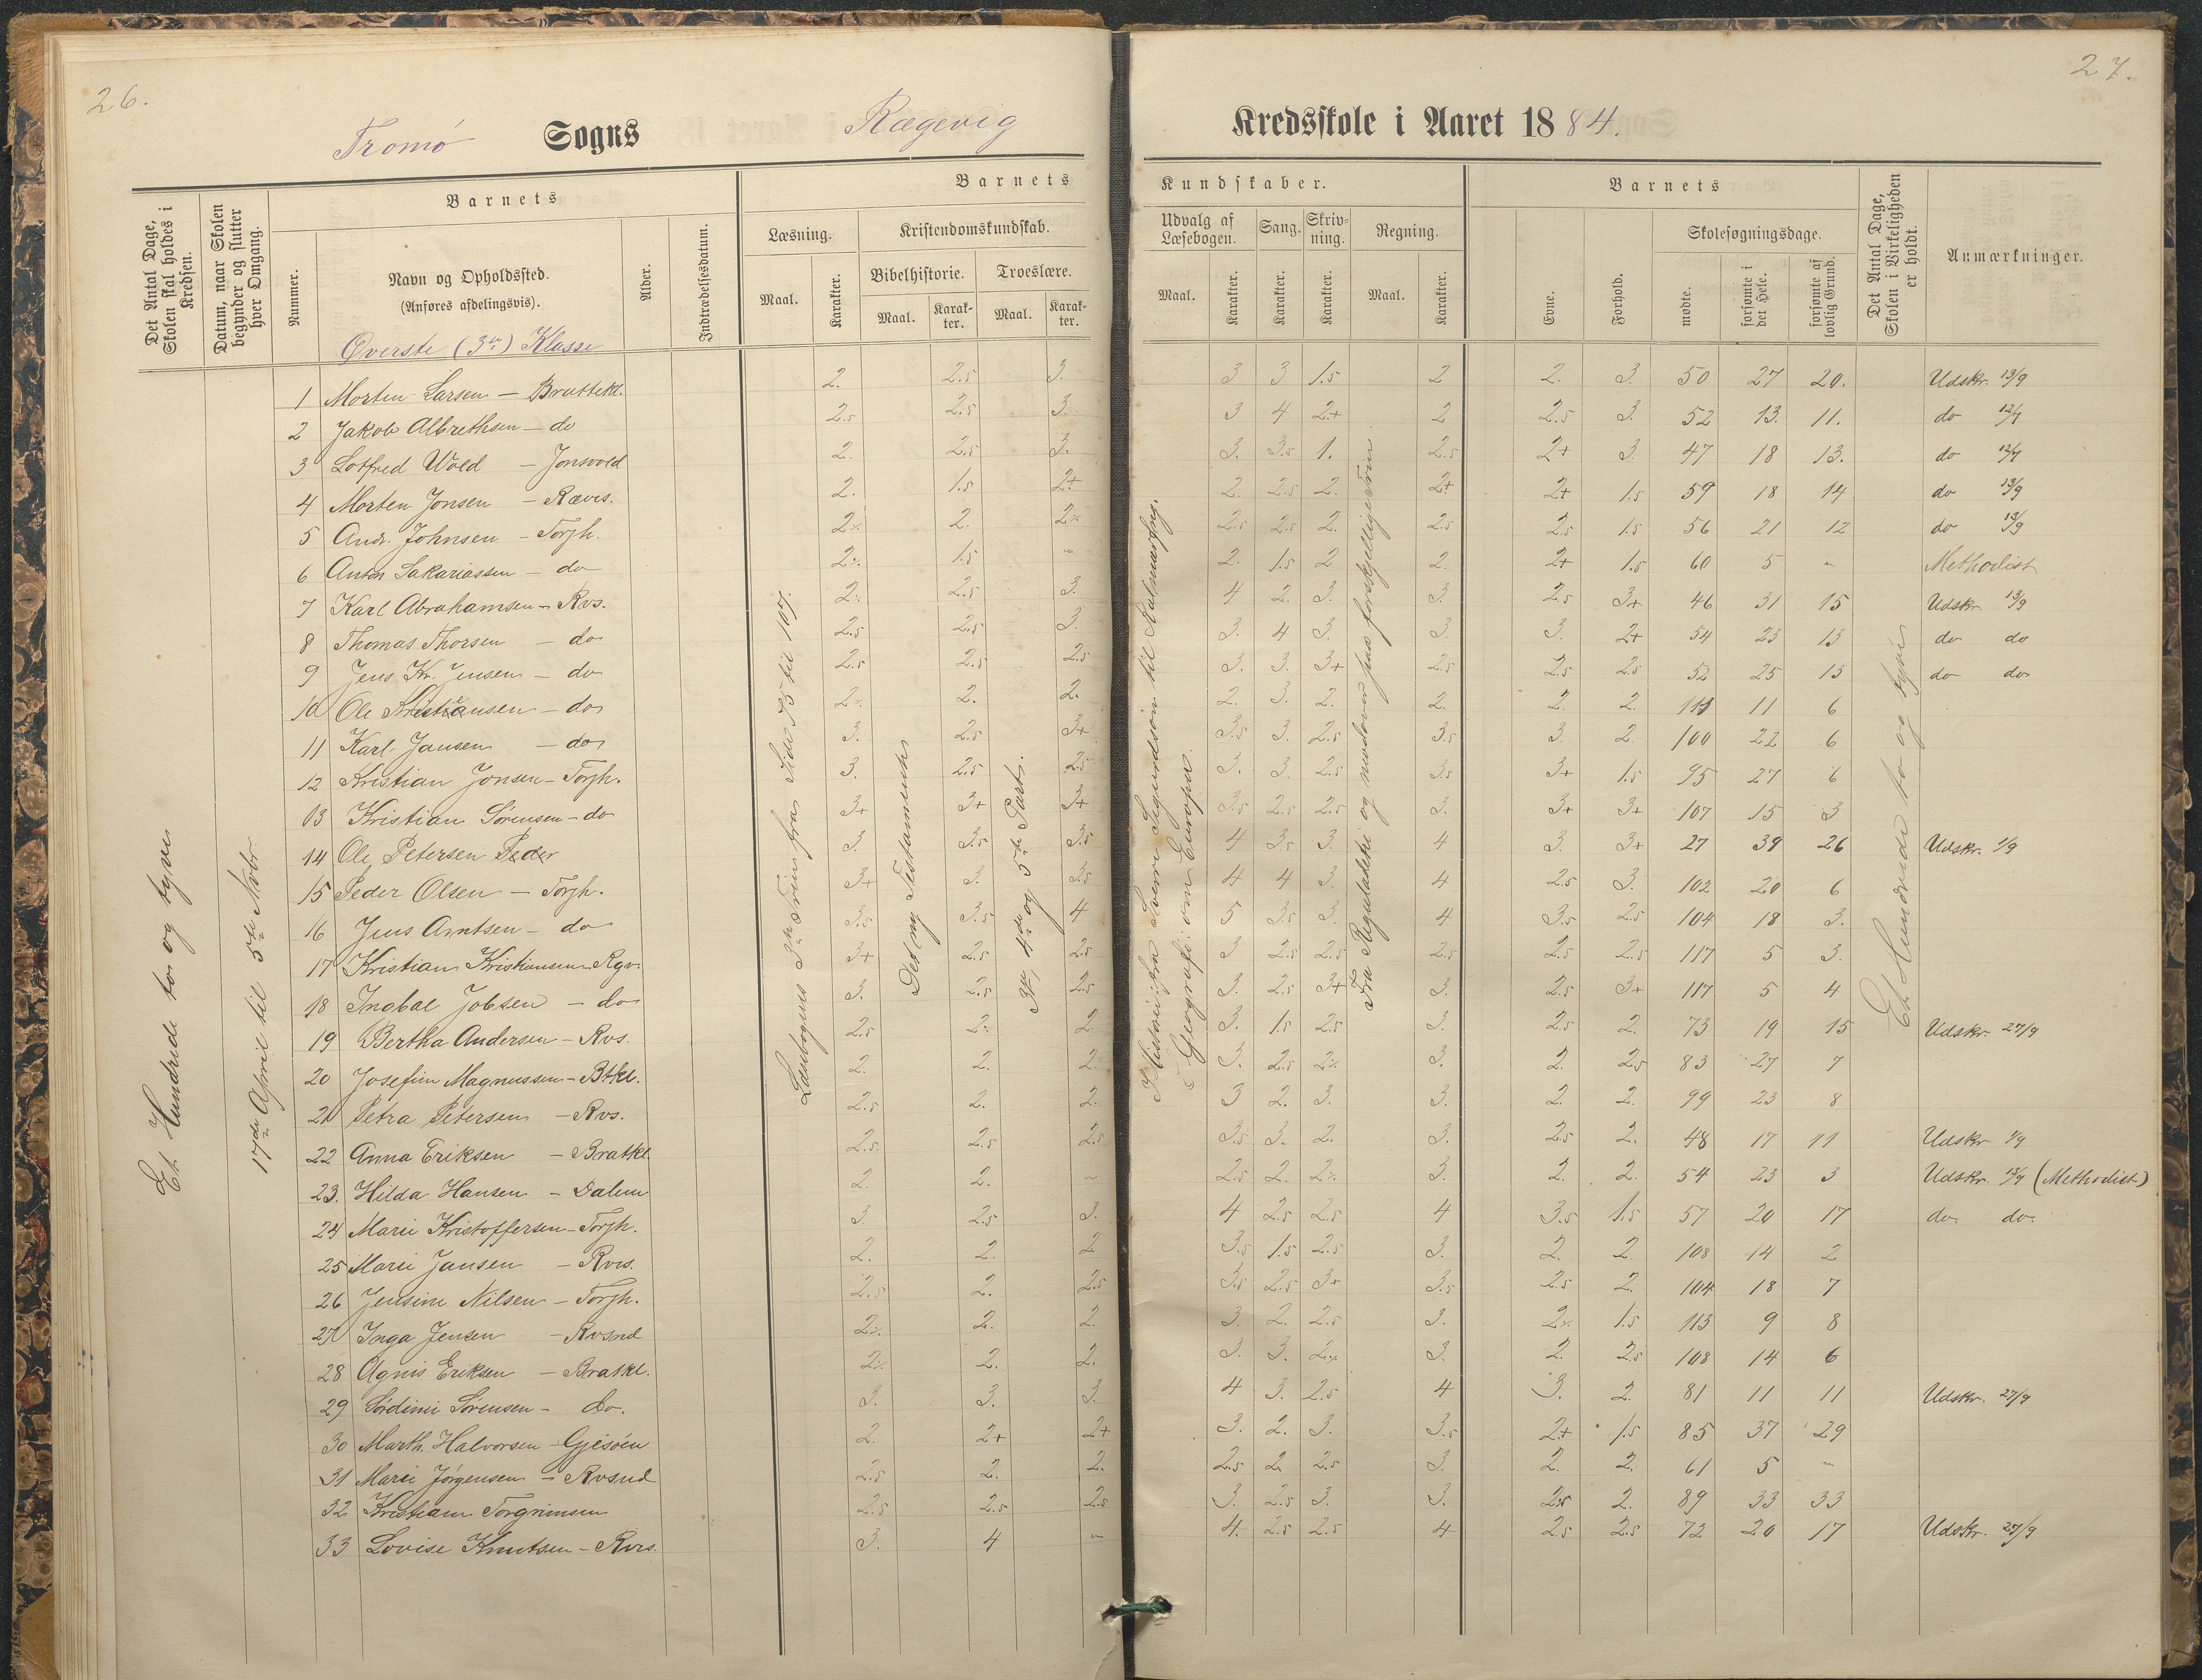 26.
27.
Tromø Sogns Rægevig Kredsskole i Aaret 1884.
Det Antal Dage, Skolen skal holdes i Kredsen.
Datum, naar Skolen begynder og slutter hver Omgang.
Barnets
Nummer.
Navn og Opholdssted.
(Anføres afdelingsvis).
Alder.
Indtrædelsesdatum.
Barnets Kundskaber.
Læsning.
Maal.
Karakter.
Kristendomskundskab.
Bibelhistorie.
Maal.
Karakter.
Troeslære.
Maal.
Karakter.
Udvalg af Læsebogen.
Maal.
Karakter.
Sang.
Karakter.
Skrivning.
Karakter.
Regning.
Maal.
Karakter.
Barnets
Evne.
Forhold.
Skolesøgningsdage.
mødte.
forsømte i det Hele.
forsømte af lovlig Grund.
Det Antal Dage, Skolen i Virkeligheden er holdt.
Anmærkninger.
Øverste (3die) Klasse
Et Hundrede to og tyve
17de April til 5te Novbr.
Læsebogens 3die Trin fra Side 75 til 107.
Det ny Testamente
3die, 4de og 5te Part.
Historie: fra Sverre Sigurdsøn til Kalmarforg.
Geografi: om Europa.
Fra Reguladetri og nedover paa forskjellige Trin
Et Hundrede to og tyve
1 Morten Larsen — Brattekl. 2. 2.5 3. 3 3 1.5 2 2. 3. 50 27 20. Udskr. 13/9
2 Jakob Albrethsen — do 2.5 2.5 3. 3 4 2+ 2 2.5 3. 52 13. 11. do 12/7
3 Lotfred Wold — Jonsvold 2. 2.5 3. 3. 3.5 1. 2.5 2+ 3 47 18 13. do 12/7
4 Morten Jonsen — Rævs. 2. 1.5 2+ 2. 2.5 2. 2+ 2+ 1.5 59 18 14 do 13/9
5 Andr. Johnsen — Torjh. 2% 2. 2% 2.5 2.5 2. 2.5 2.5 1.5 56 21 12 do 13/9
6 Anton Sakariassen — do 2% 1.5 " 2. 1.5 2 2. 2+ 1.5 60 5 " Methodist
7 Karl Abrahamsen — Rvs. 2% 2.5 3. 4 2. 3. 3. 2.5 3+ 46 31 15 Udskr. 13/9
8 Thomas Thorsen — do 2.5 2.5 3. 3. 4 3. 3. 3. 2+ 54 23 13 do do
9 Jens Kr. Jensen — do 2.5 2.5 2.5 3. 3. 3+ 2.5 2.5 2.5 52 25 13 do do
10 Ole Kristiansen — do 2% 2. 2. 2. 3. 2. 2. 2. 2. 111 11 6
11 Karl Jansen — do 3. 2.5 3+ 3.5 3. 2.5 3.5 3. 2 100 22 6
12 Kristian Jonsen — Torjh. 3. 2.5 2.5 3. 3. 2.5 3.5 3+ 1.5 95 27 6
13 Kristian Sørensen — do 3+ 3+ 3+ 3.5 2.5 2.5 3. 3+ 3+ 107 15 3
14 Ole Petersen Peder 3. 3.5 3.5 4 3.5 3. 4 3. 3+ 27 39 26 Udskr. 1/9
15 Peder Olsen — Torjh. 3+ 3. 3.5 4 4 3. 4 2.5 3. 102 20 6
16 Jens Arntsen — do 3.5 3.5 4 5 3.5 3. 4 3.5 2.5 104 18 3.
17 Kristian Kristiansen Rgv. 3+ 2.5 2.5 3 2.5 2.5 2.5 2.5 2.5 117 5 3.
18 Ingbal Jobsen — do 3. 2.5 2.5 3. 2.5 3+ 3. 2.5 3+ 117 5 4
19 Bertha Andersen — Rvs. 2.5 2% 2. 3. 1.5 2.5 3. 2.5 2. 73 19 15 Udskr. 27/9
20 Josefine Magnussen — Btkl. 2. 2. 2. 3. 2.5 2% 3. 2. 2.5 83 27 7
21 Petra Petersen — Rvs. 2.5 2. 2. 3 2. 3. 3. 2. 2. 99 23 8
22 Anna Eriksen — Bratkl. 2.5 2.5 2.5 3.5 3. 2. 3. 2.5 2. 48 17 11 Udskr 1/9
23. Hilda Hansen — Dalen 2. 2. " 2.5 2. 2% 3. 2. 2. 54 23 3 Udskr. 13/9 (Methodist)
24 Marie Kristoffersen — Torjh. 3. 2.5 3. 4 2.5 2.5 4 3.5 1.5 57 20 17 do do.
25 Marie Jansen — Rvs. 2. 2. 2 3.5 1.5 2.5 3. 2. 2. 108 14 2
26 Jensine Nilsen — Torjh. 2.5 2. 2.5 3.5 2.5 3+ 3.5 2.5 2. 104 18 7
27 Inga Jensen — Rvsnd 2% 2. 2. 3. 2. 2.5 3. 2% 1.5 113 9 8
28 Agnes Eriksen — Bratkl. 2% 2. 2. 3. 3. 2% 3. 2. 2.5 108 14 6
29 Sørdine Sørensen — do. 3. 3. 3. 4 3. 2.5 4 3. 2. 81 11 11 Udskr. 27/9
30 Marth. Halvorsen — Gjesøen 2. 2+ 2+ 3. 2. 3. 3.5 2+ 1.5 85 37 29
31 Marie Jørgensen — Rvsnd 2.5 2. 2. 2.5 2. 2.5 3. 2. 2. 61 5 "
32 Kristiane Torgrimsen 2.5 2.5 2.5 3. 2.5 3. 3. 2.5 2. 89 33 33
33 Lovise Knutsen — Rvs. 3. 4 " 4. 2.5 2.5 4 2.5 2.5 72 20 17 Udskr. 27/9